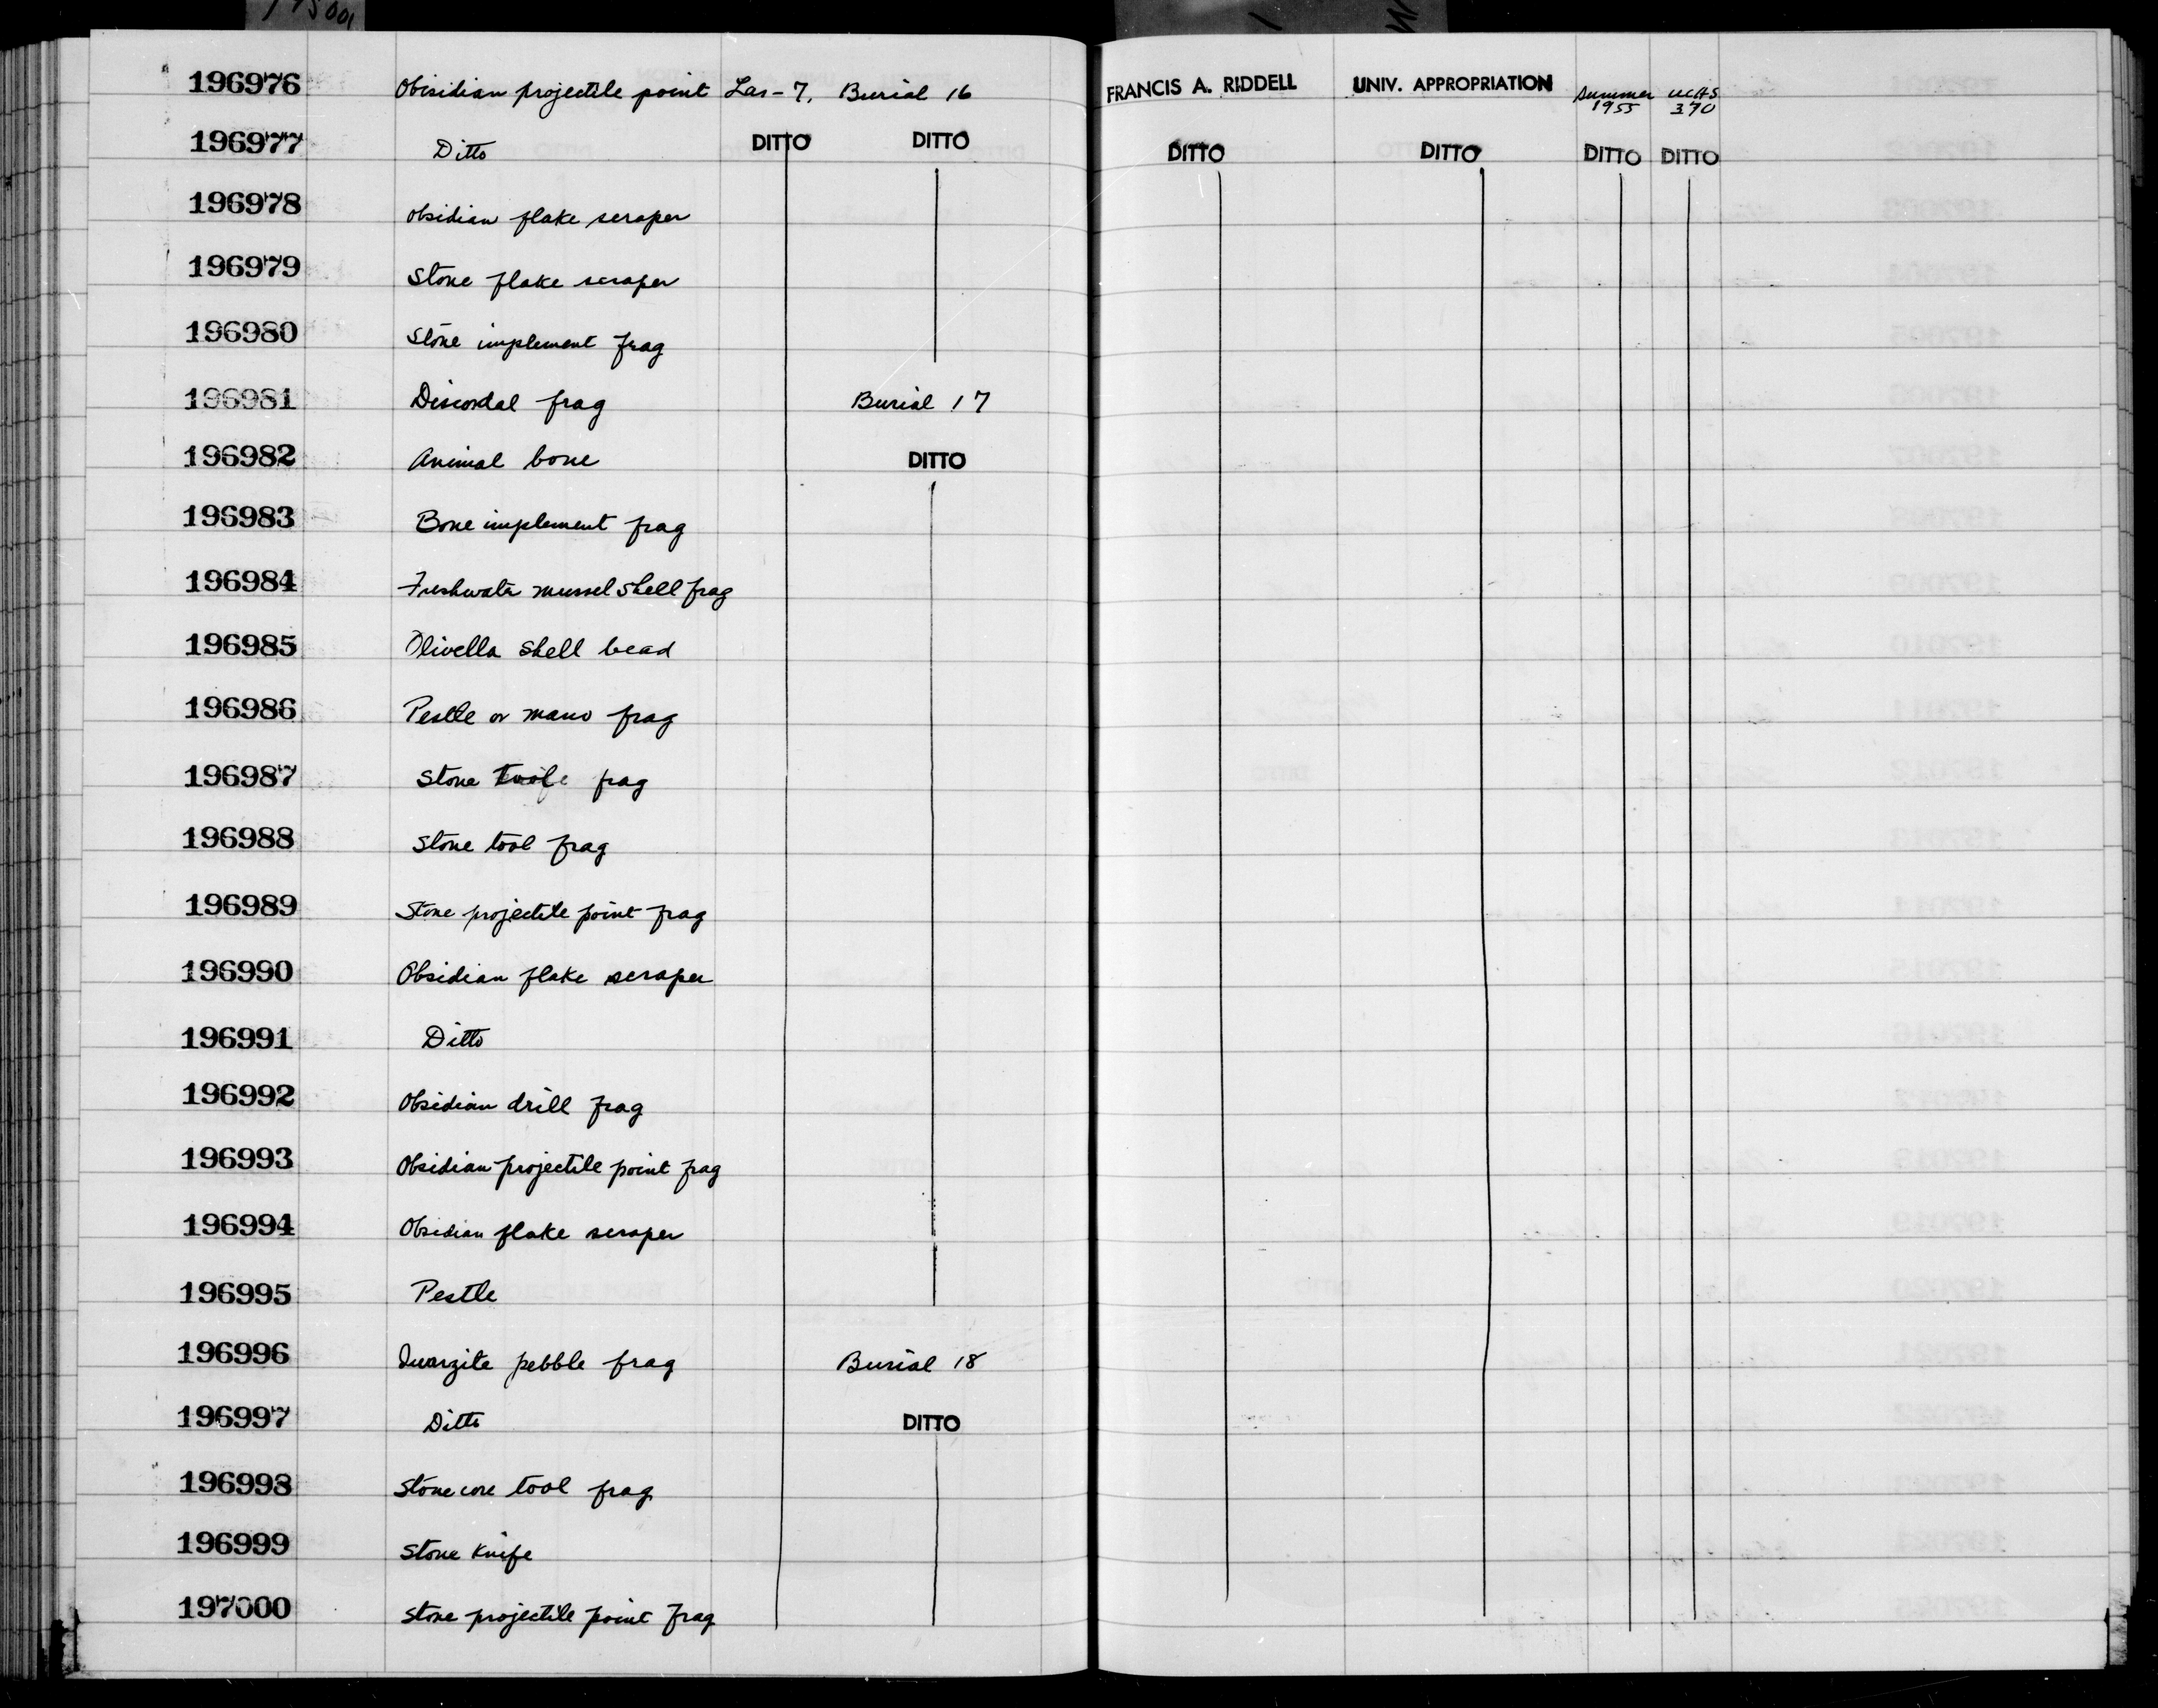 196976 Obisidian projectile point Las-7, Burial 16 FRANCIS A. RIDDELL UNIV. APPROPRIATION Summer 1955 UCAS 370
196977 Ditto DITTO DITTO DITTO DITTO DITTO DITTO
196978 Obsidian flake scraper
196979 Stone flake scraper
196980 Stone implement frag
196981 Discoidal frag Burial 17
196982 Animal bone DITTO
196983 Bone implement frag
196984 Freshwater mussel shell frag
196985 Olivella shell bead
196986 Pestle or mano frag
196987 Stone frag
196988 Stone tool frag
196989 Stone projectile point frag
196990 Obsidian flake scraper
196991 Ditto
196992 Obsidian drill frag
196993 Obsidian projectile point frag
196994 Obsidian flake scraper
196995 Pestle
196996 Quarzite pebble frag Burial 18
196997 Ditto DITTO
196998 Stone core tool frag
196999 Stone Knife
197000 Stone projectile point frag